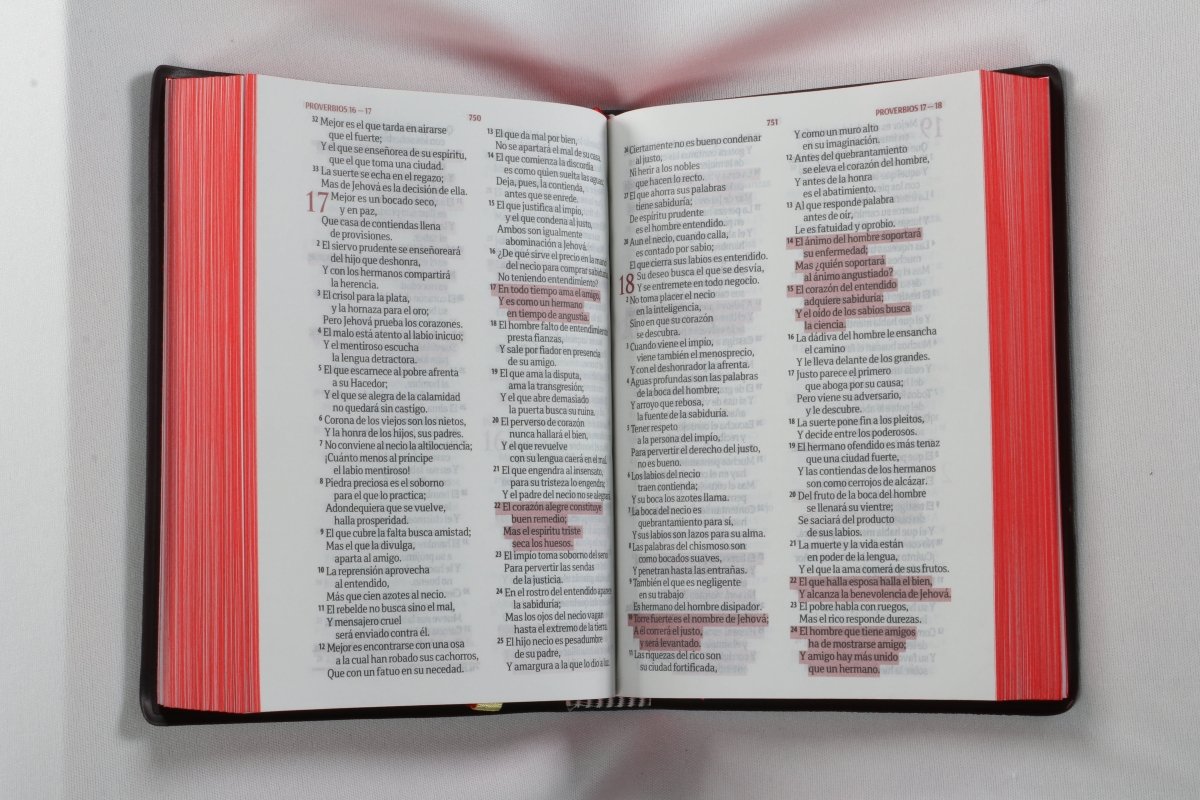 PROVERBIOS 16 — 17
750
32 Mejor es el que tarda en airarse
que el fuerte;
Y el que se enseñorea de su espíritu,
que el que toma una ciudad.
33 La suerte se echa en el regazo;
Mas de Jehová es la decisión de ella.
17 Mejor es un bocado seco,
y en paz,
Que casa de contiendas llena
de provisiones.
2 El siervo prudente se enseñoreará
del hijo que deshonra,
Y con los hermanos compartirá
la herencia.
3 El crisol para la plata,
y la hornaza para el oro;
Pero Jehová prueba los corazones.
4 El malo está atento al labio inicuo;
Y el mentiroso escucha
la lengua detractora.
5 El que escarnece al pobre afrenta
a su Hacedor;
Y el que se alegra de la calamidad
no quedará sin castigo.
6 Corona de los viejos son los nietos,
Y la honra de los hijos, sus padres.
7 No conviene al necio la altilocuencia;
¡Cuánto menos al príncipe
el labio mentiroso!
8 Piedra preciosa es el soborno
para el que lo practica;
Adondequiera que se vuelve,
halla prosperidad.
9 El que cubre la falta busca amistad;
Mas el que la divulga,
aparta al amigo.
10 La reprensión aprovecha
al entendido,
Más que cien azotes al necio.
11 El rebelde no busca sino el mal,
Y mensajero cruel
será enviado contra él.
12 Mejor es encontrarse con una osa
a la cual han robado sus cachorros,
Que con un fatuo en su necedad.
13 El que da mal por bien,
No se apartará el mal de su casa.
14 El que comienza la discordia
es como quien suelta las aguas;
Deja, pues, la contienda,
antes que se enrede.
15 El que justifica al impío,
y el que condena al justo,
Ambos son igualmente
abominación a Jehová.
16 ¿De qué sirve el precio en la mano
del necio para comprar sabiduría,
No teniendo entendimiento?
17 En todo tiempo ama el amigo,
Y es como un hermano
en tiempo de angustia.
18 El hombre falto de entendimiento
presta fianzas,
Y sale por fiador en presencia
de su amigo.
19 El que ama la disputa,
ama la transgresión;
Y el que abre demasiado
la puerta busca su ruina.
20 El perverso de corazón
nunca hallará el bien,
Y el que revuelve
con su lengua caerá en el mal.
21 El que engendra al insensato,
para su tristeza lo engendra;
Y el padre del necio no se alegrará.
22 El corazón alegre constituye
buen remedio;
Mas el espíritu triste
seca los huesos.
23 El impío toma soborno del seno
Para pervertir las sendas
de la justicia.
24 En el rostro del entendido aparece
la sabiduría;
Mas los ojos del necio vagan
hasta el extremo de la tierra.
25 El hijo necio es pesadumbre
de su padre,
Y amargura a la que lo dio a luz.
751
PROVERBIOS 17—18
26 Ciertamente no es bueno condenar
al justo,
Ni herir a los nobles
que hacen lo recto.
27 El que ahorra sus palabras
tiene sabiduría;
De espíritu prudente
es el hombre entendido.
28 Aun el necio, cuando calla,
es contado por sabio;
El que cierra sus labios es entendido.
18 Su deseo busca el que se desvía,
Y se entremete en todo negocio.
2 No toma placer el necio
en la inteligencia,
Sino en que su corazón
se descubra.
3 Cuando viene el impío,
viene también el menosprecio,
Y con el deshonrador la afrenta.
4 Aguas profundas son las palabras
de la boca del hombre;
Y arroyo que rebosa,
la fuente de la sabiduría.
5 Tener respeto
a la persona del impío,
Para pervertir el derecho del justo,
no es bueno.
6 Los labios del necio
traen contienda;
Y su boca los azotes llama.
7 La boca del necio es
quebrantamiento para sí,
Y sus labios son lazos para su alma.
8 Las palabras del chismoso son
como bocados suaves,
Y penetran hasta las entrañas.
9 También el que es negligente
en su trabajo
Es hermano del hombre disipador.
10 Torre fuerte es el nombre de Jehová;
A él correrá el justo,
y será levantado.
11 Las riquezas del rico son
su ciudad fortificada,
Y como un muro alto
en su imaginación.
12 Antes del quebrantamiento
se eleva el corazón del hombre,
Y antes de la honra
es el abatimiento.
13 Al que responde palabra
antes de oír,
Le es fatuidad y oprobio.
14 El ánimo del hombre soportará
su enfermedad;
Mas ¿quién soportará
al ánimo angustiado?
15 El corazón del entendido
adquiere sabiduría;
Y el oído de los sabios busca
la ciencia.
16 La dádiva del hombre le ensancha
el camino
Y le lleva delante de los grandes.
17 Justo parece el primero
que aboga por su causa;
Pero viene su adversario,
y le descubre.
18 La suerte pone fin a los pleitos,
Y decide entre los poderosos.
19 El hermano ofendido es más tenaz
que una ciudad fuerte,
Y las contiendas de los hermanos
son como cerrojos de alcázar.
20 Del fruto de la boca del hombre
se llenará su vientre;
Se saciará del producto
de sus labios.
21 La muerte y la vida están
en poder de la lengua,
Y el que la ama comerá de sus frutos.
22 El que halla esposa halla el bien,
Y alcanza la benevolencia de Jehová.
23 El pobre habla con ruegos,
Mas el rico responde durezas.
24 El hombre que tiene amigos
ha de mostrarse amigo;
Y amigo hay más unido
que un hermano.